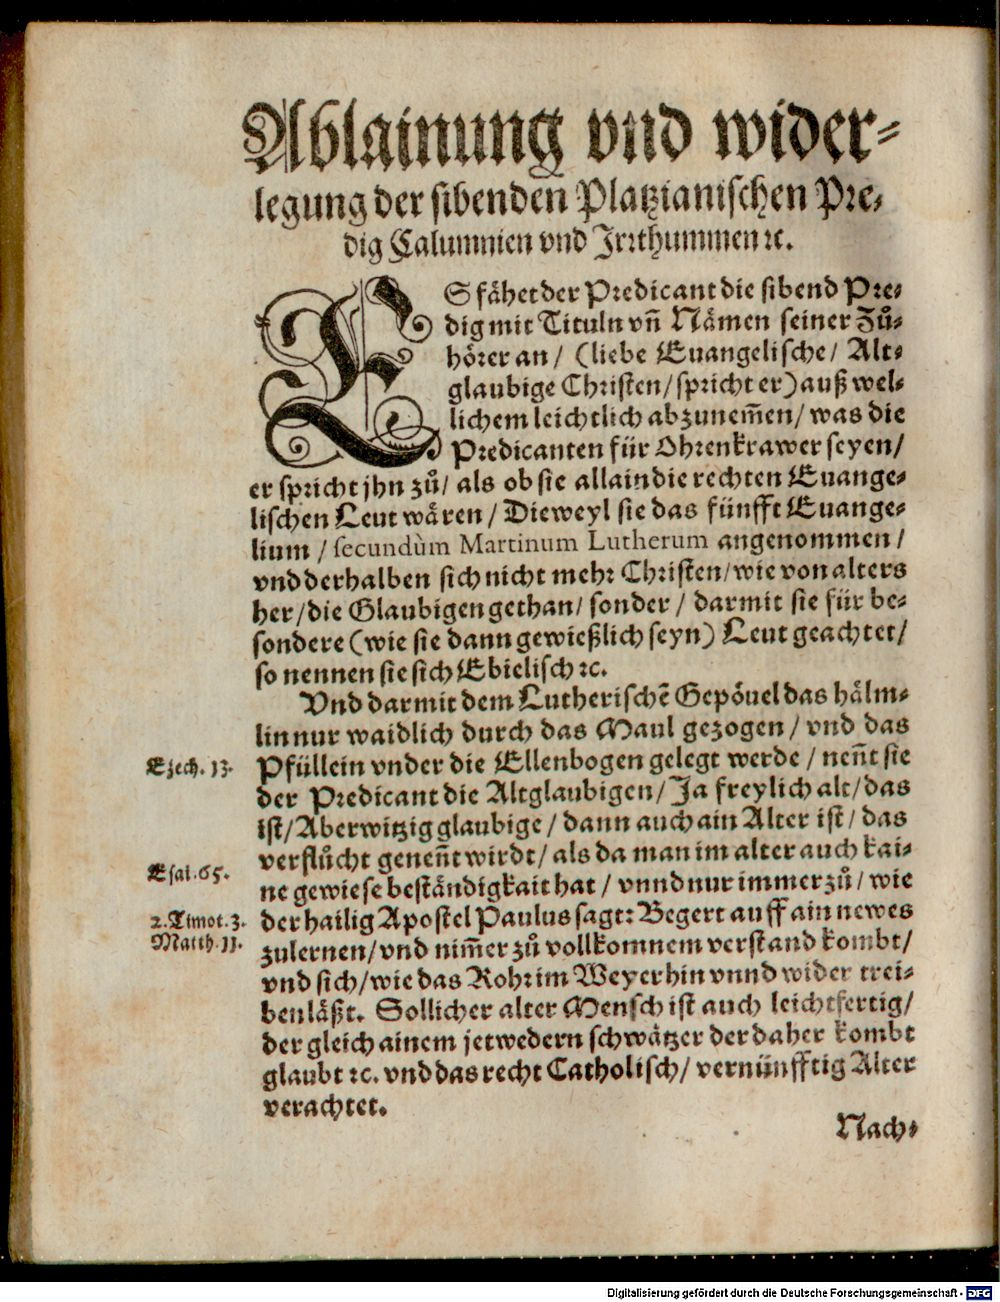 Ablainung vnd wider⸗
legung der sibenden Platzianischen Pre⸗
dig Calumnien vnd Jrrthummen ꝛc.
ES fähet der Predicant die sibend Pre⸗
dig mit Tituln vñ Nämen seiner Zů⸗
hörer an / (liebe Euangelische / Alt⸗
glaubige Christen / spricht er) auß wel⸗
lichem leichtlich abzunem̃en / was die
Predicanten für Ohrenkrawer seyen /
er spricht jhn zů / als ob sie allain die rechten Euange⸗
lischen Leut wären / Dieweyl sie das fünfft Euange⸗
lium / secundùm Martinum Lutherum angenommen /
vnd derhalben sich nicht mehr Christen / wie von alters
her / die Glaubigen gethan / sonder / darmit sie für be⸗
sondere (wie sie dann gewießlich seyn) Leut geachtet /
so nennen sie sich Ebielisch ꝛc.
Vnd darmit dem Lutherischẽ Gepöuel das hälm⸗
lin nur waidlich durch das Maul gezogen / vnd das
Ezech. 13. Pfüllein vnder die Ellenbogen gelegt werde / neñt sie
der Predicant die Altglaubigen / Ja freylich alt / das
ist / Aberwitzig glaubige / dann auch ain Alter ist / das
verflůcht geneñt wirdt / als da man im alter auch kai⸗
Esai. 65. ne gewiese beständigkait hat / vnnd nur immerzů / wie
2. Timot. 3. der hailig Apostel Paulus sagt: Begert auff ain newes
Matth. 11. zulernen / vnd nim̃er zů vollkomnem verstand kombt /
vnd sich / wie das Rohr im Weyer hin vnnd wider trei⸗
ben läßt. Sollicher alter Mensch ist auch leichtfertig /
der gleich ainem jetwedern schwätzer der daher kombt
glaubt ꝛc. vnd das recht Catholisch / vernünfftig Alter
verachtet.
Nach⸗
Digitalisierung gefördert durch die Deutsche Forschungsgemeinschaft - DFG